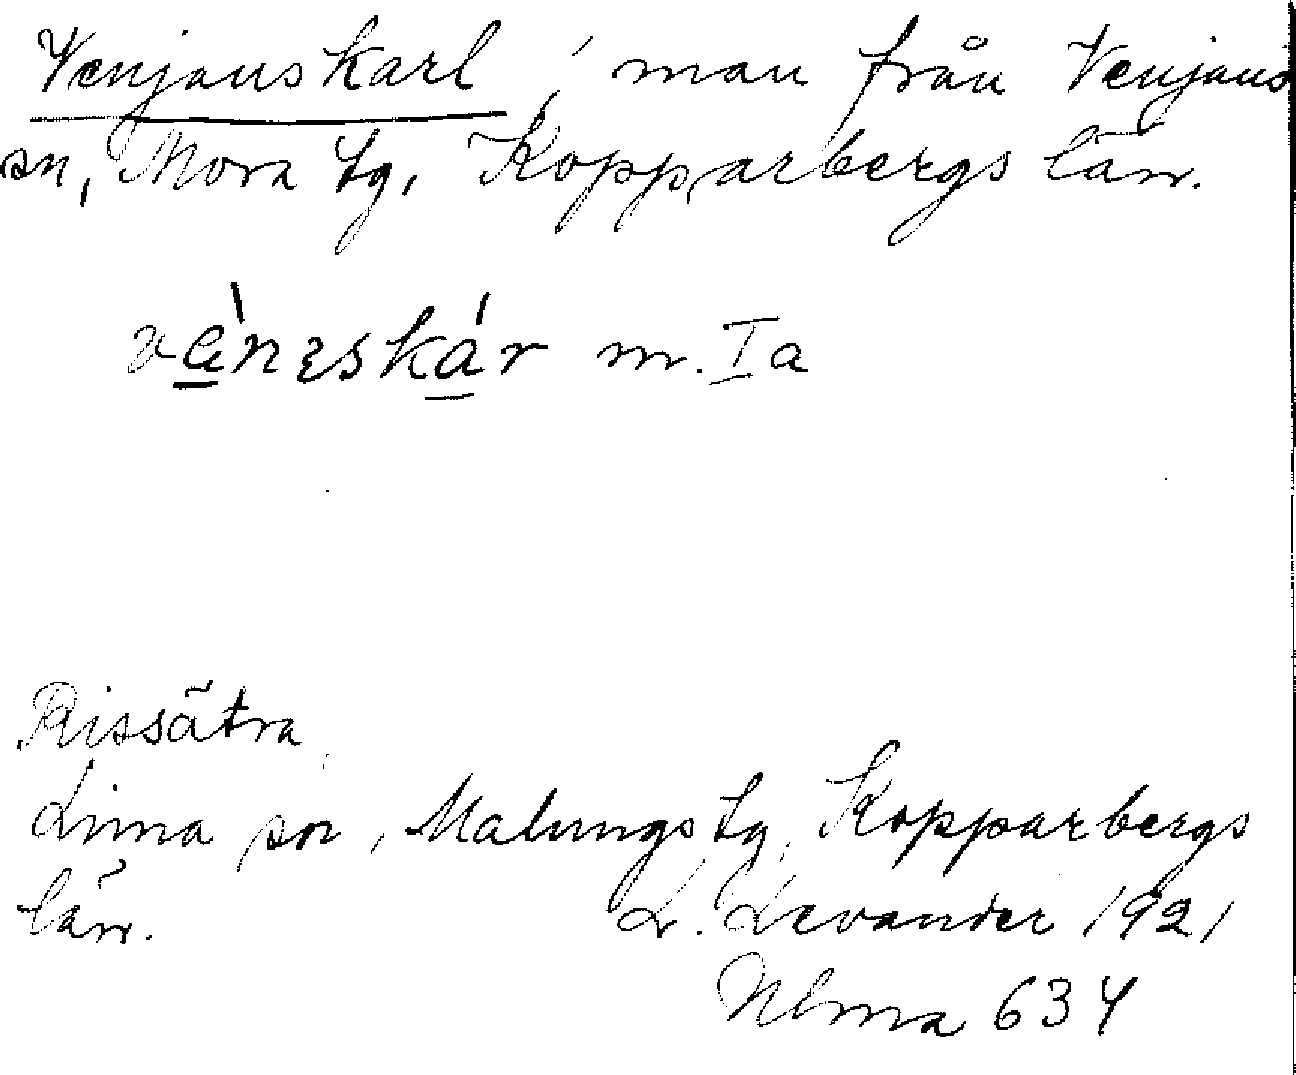 Venjanskarl, man från Venjans
sn, Mora tg, Kopparbergs län.
vä̀neskár m. Ia
Rissätra
Lima sn, Malungs tg, Kopparbergs
län. L. Levander 1921
Ulma 634